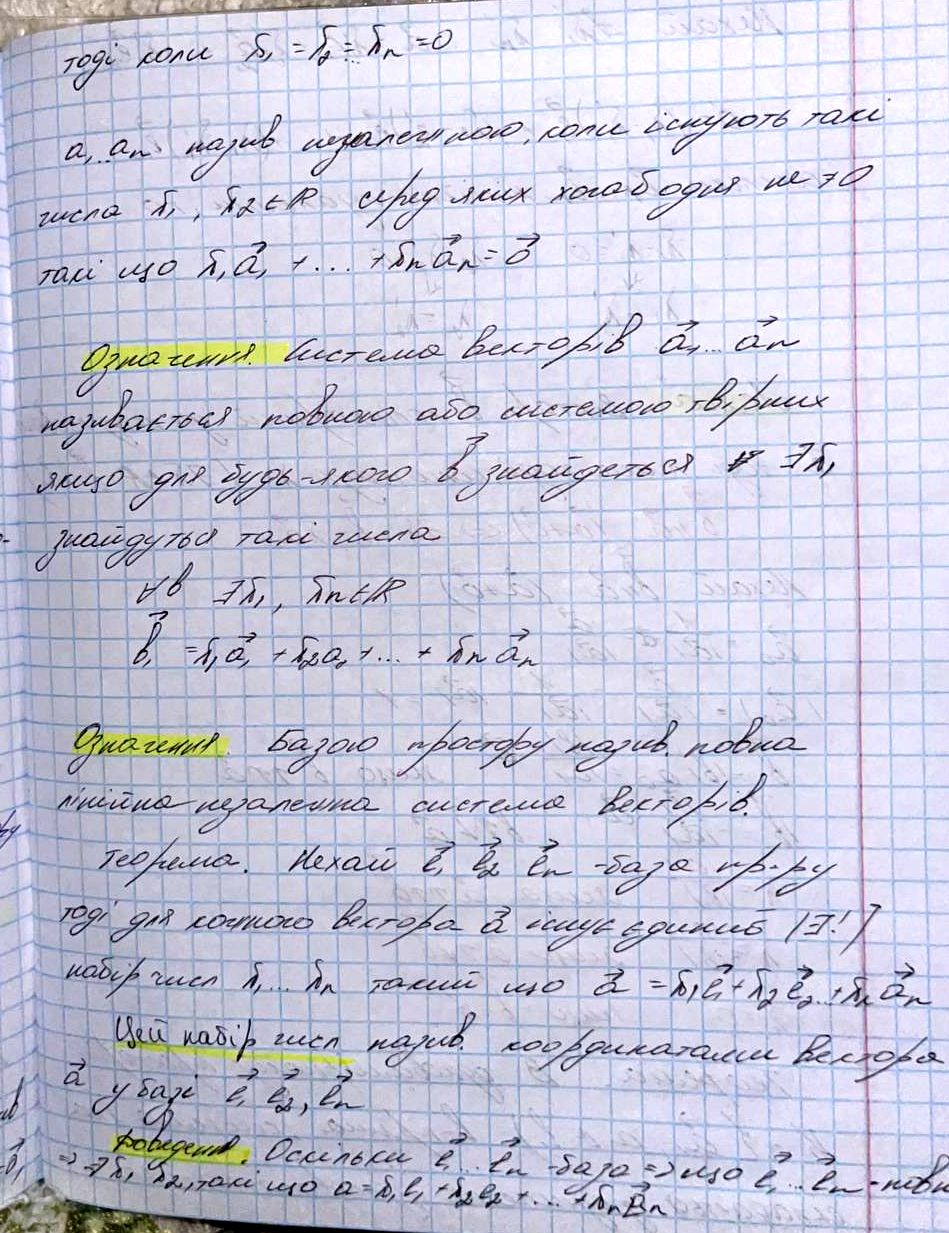 тоді коли λ₁ = λ₂ = λₙ = 0
a₁...aₙ назив незалежною, коли існують такі
числа λ₁, λ₂ ∈ ℝ серед яких хочаб одне не =0
такі що λ₁a⃗₁ + ... + λₙa⃗ₙ = 0⃗
Означення. Система векторів a⃗₁...a⃗ₙ
називається повною або системою твірних
якщо для будь-якого b⃗ знайдеться ∃λ₁
знайдуться такі числа
∀b ∃λ₁, λₙ ∈ ℝ
b⃗₁ = λ₁a⃗₁ + λ₂a₂ + ... + λₙa⃗ₙ
Означення. Базою простору назив. повна
лінійна незалежна система векторів.
Теорема. Нехай e⃗₁ e⃗₂ e⃗ₙ - база пр-ру
тоді для кожного вектора a⃗ існує єдиний (∃!)
набір числ λ₁...λₙ такий що a⃗ = λ₁e⃗₁ + λ₂e⃗₂..+λₙa⃗ₙ
Цей набір числ назив. координатами вектора
a⃗ у базі e⃗₁ e⃗₂, e⃗ₙ
Доведення. Оскільки e⃗₁...e⃗ₙ - база => що e⃗₁...e⃗ₙ - повн
=> ∃λ₁ λ₂, такі що a = λ₁e₁ + λ₂e₂ + ... + λₙ